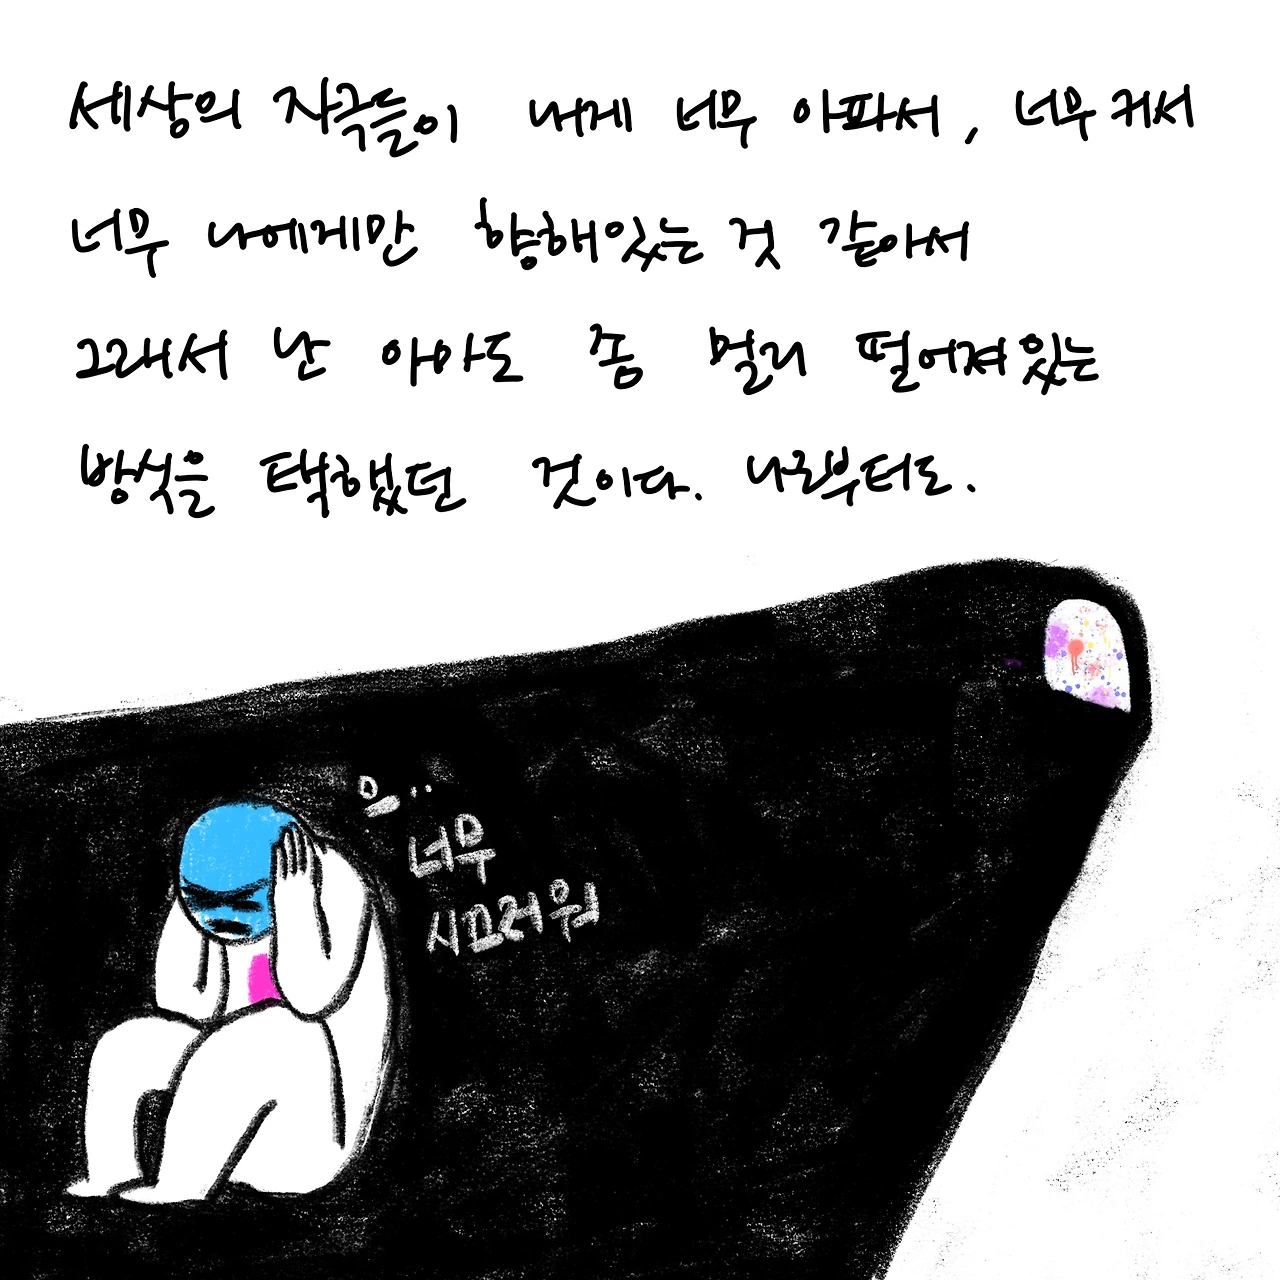 세상의 자극들이 내게 너무 아파서, 너무 커서
너무 나에게만 향해있는 것 같아서
그래서 난 아마도 좀 멀리 떨어져있는
방식을 택했던 것이다. 나로부터도.
으..
너무
시끄러워